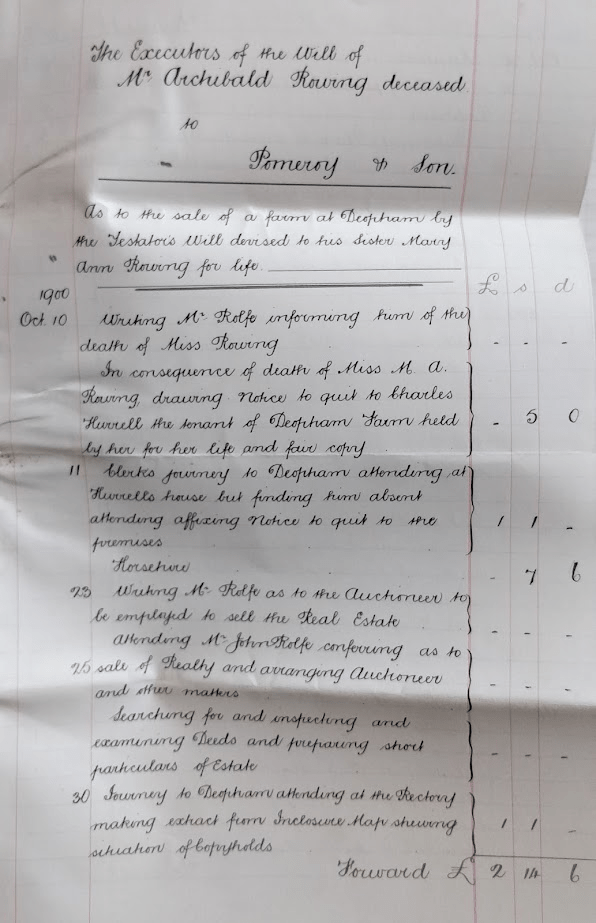 The Executors of the Will of
Mr Archibald Rowing deceased
to
Pomeroy & Son.
As to the sale of a farm at Deopham by
the Testator's Will devised to his Sister Mary
Ann Rowing for life.
£ s d
1900
Oct. 10 Writing Mr Rolfe informing him of the
death of Miss Rowing - - -
In consequence of death of Miss M. A.
Rowing drawing Notice to quit to Charles
Hurrell the tenant of Deopham Farm held - 5 0
by her for her life and fair copy
11 Clerks journey to Deopham attending at
Hurrells house but finding him absent
attending affixing Notice to quit to the 1 1 -
premises
Horsehire - 7 6
23 Writing Mr Rolfe as to the Auctioneer to
be employed to sell the Real Estate - - -
Attending Mr John Rolfe conferring as to
25 sale of Realty and arranging Auctioneer
and other matters - - -
Searching for and inspecting and
examining Deeds and preparing short - - -
particulars of Estate
30 Journey to Deopham attending at the Rectory
making extract from Inclosure Map shewing 1 1 -
situation of Copyholds
Forward £ 2 14 6